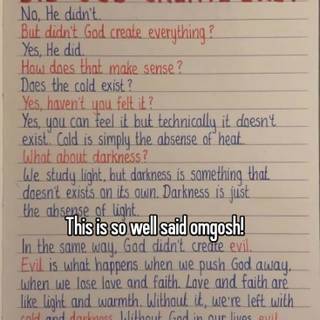 No, He didn't.
But didn't God create everything?
Yes, He did.
How does that make sense?
Does the cold exist?
Yes, haven't you felt it?
Yes, you can feel it but technically it doesn't
exist. Cold is simply the absense of heat.
What about darkness?
We study light, but darkness is something that
doesn't exists on its own. Darkness is just
the absense of light.
This is so well said omgosh!
In the same way, God didn't create evil.
Evil is what happens when we push God away,
when we lose love and faith. Love and faith are
like light and warmth. Without it, we're left with
cold and darkness. Without God in our lives, evil